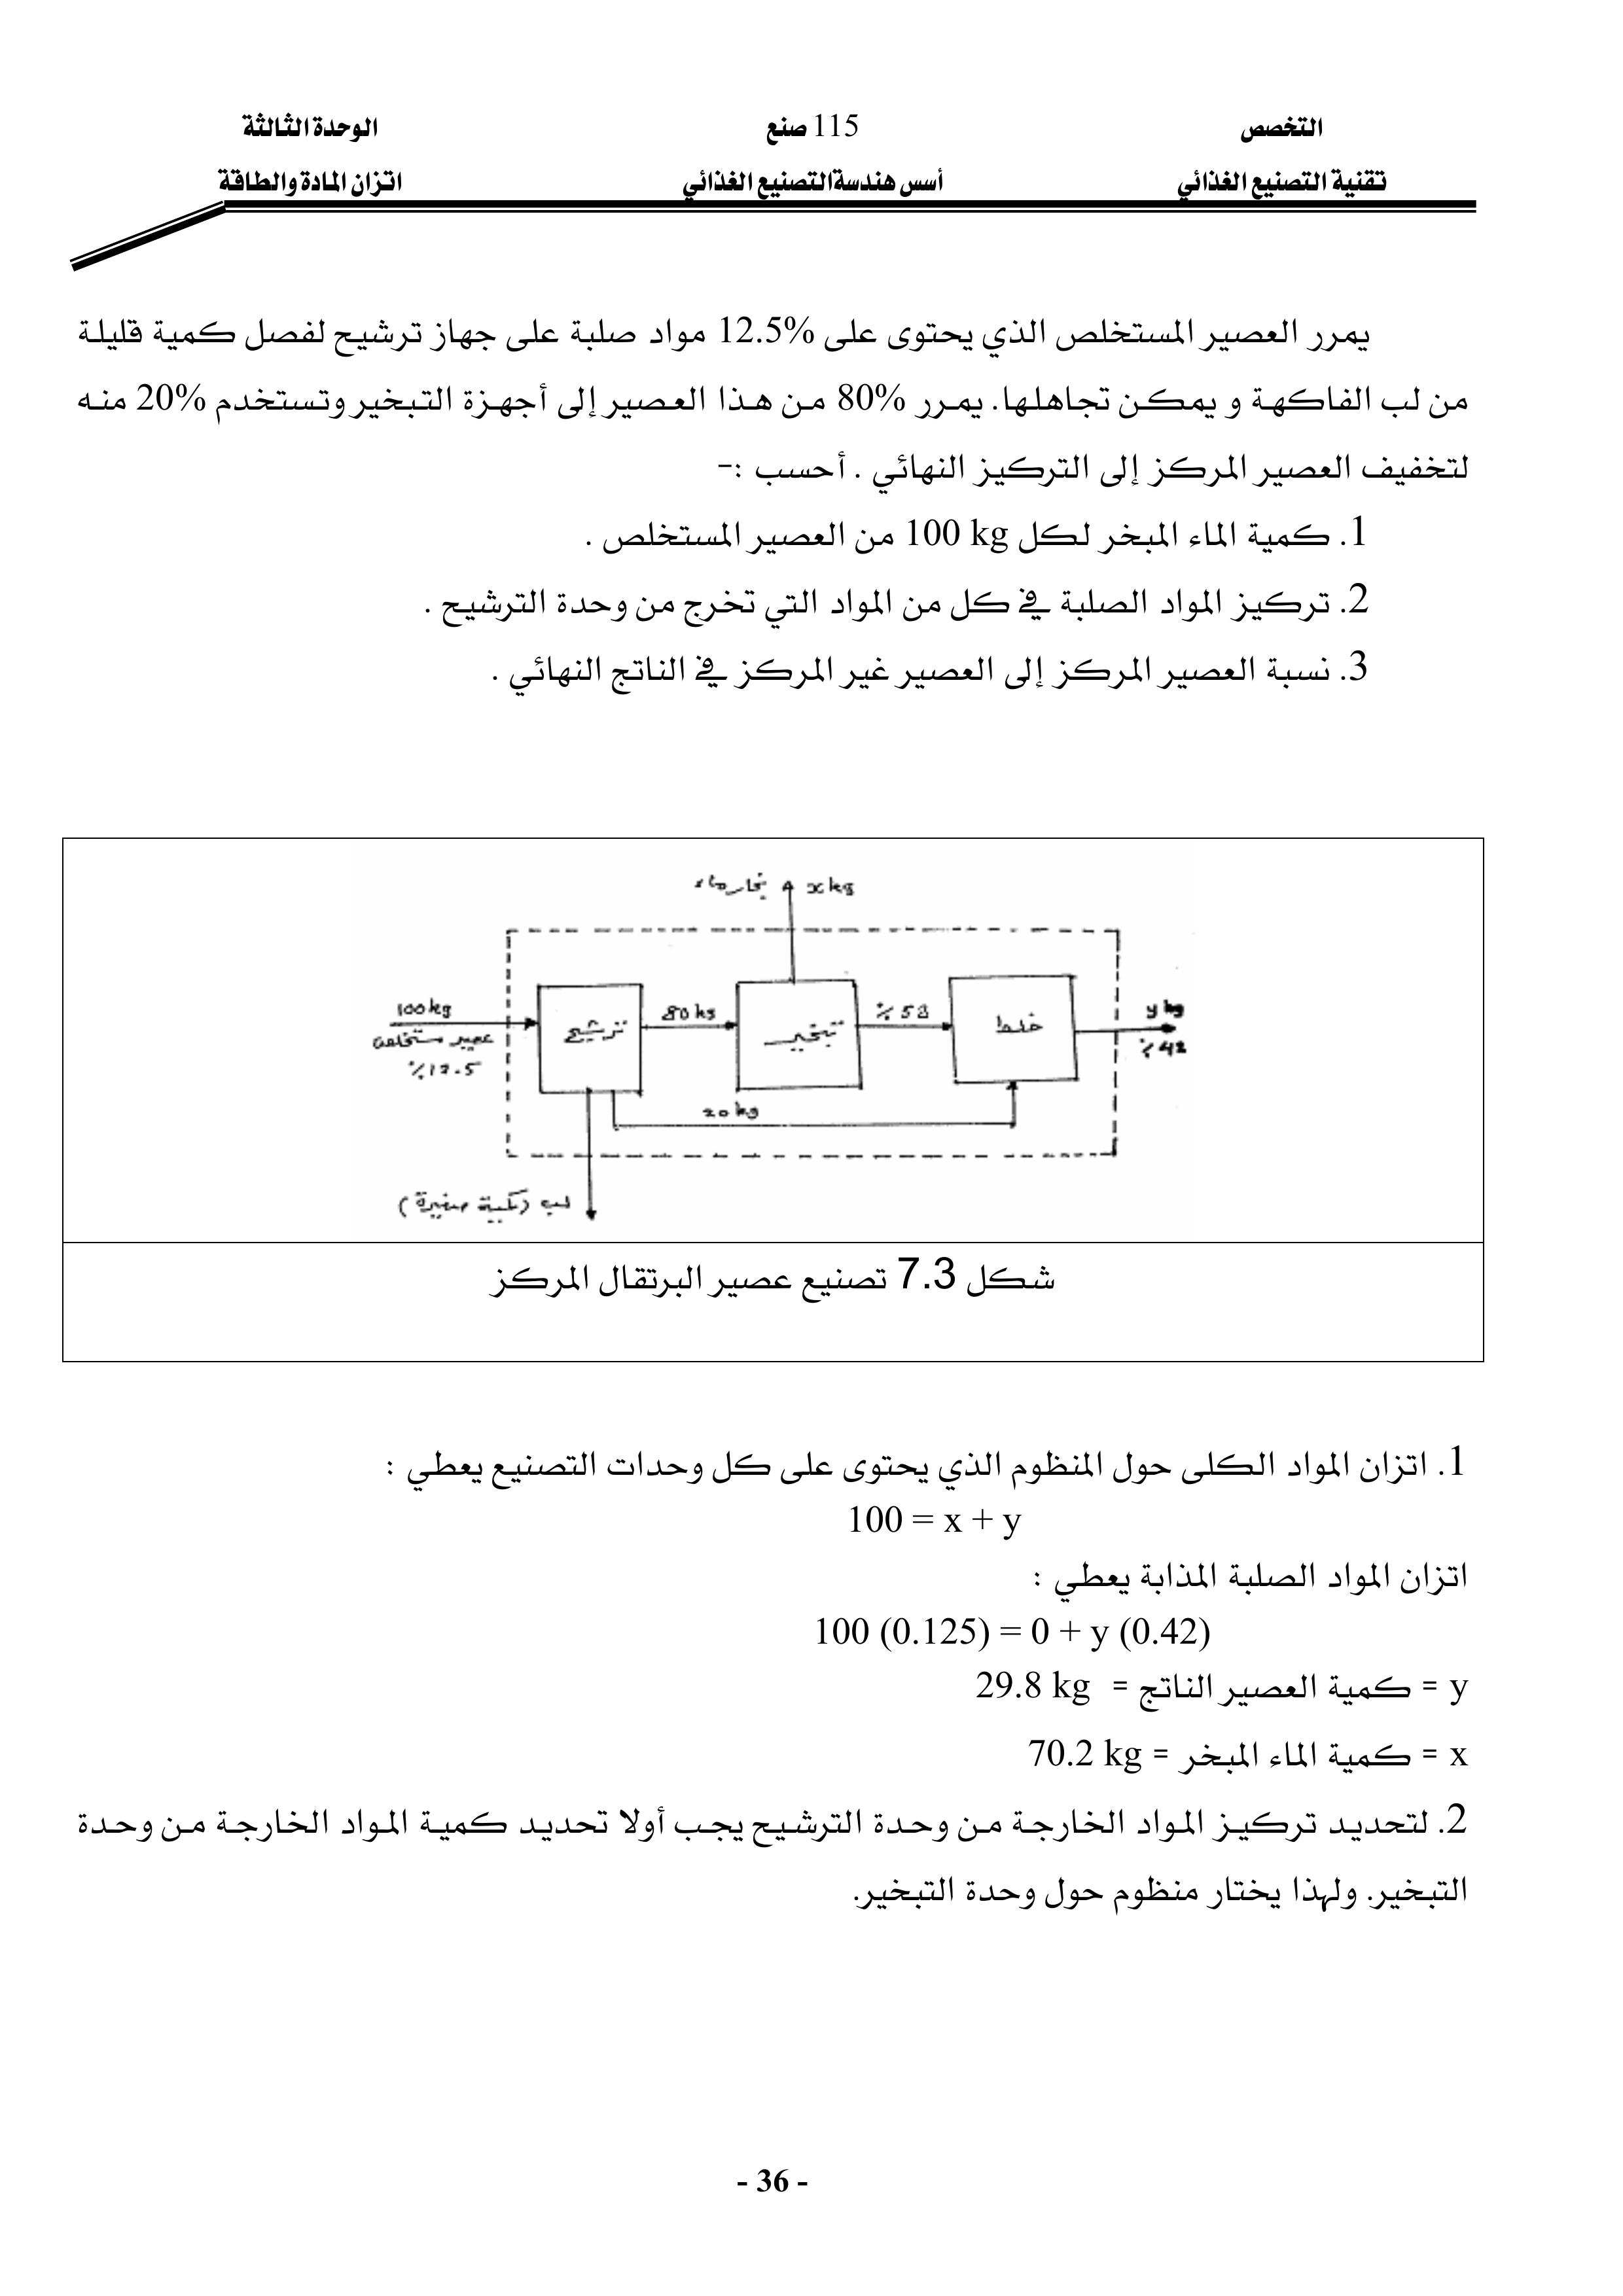 التخصص 115 صنع الوحدة الثالثة
تقنية التصنيع الغذائي أسس هندسةالتصنيع الغذائي اتزان المادة والطاقة
يمرر العصير المستخلص الذي يحتوى على 12.5% مواد صلبة على جهاز ترشيح لفصل كمية قليلة
من لب الفاكهة و يمكن تجاهلها. يمرر 80% من هذا العصير إلى أجهزة التبخير وتستخدم 20% منه
لتخفيف العصير المركز إلى التركيز النهائي . أحسب :-
1. كمية الماء المبخر لكل 100 kg من العصير المستخلص .
2. تركيز المواد الصلبة في كل من المواد التي تخرج من وحدة الترشيح .
3. نسبة العصير المركز إلى العصير غير المركز في الناتج النهائي .
بخار ماء x kg
100 kg
عصير مستخلص
% 12.5
ترشيح
80 kg
تبخير
% 58
خلط
y kg
% 42
20 kg
لب (كمية صغيرة)
شكل 7.3 تصنيع عصير البرتقال المركز
1. اتزان المواد الكلى حول المنظوم الذي يحتوى على كل وحدات التصنيع يعطي :
100 = x + y
اتزان المواد الصلبة المذابة يعطي :
100 (0.125) = 0 + y (0.42)
y = كمية العصير الناتج = 29.8 kg
x = كمية الماء المبخر = 70.2 kg
2. لتحديد تركيز المواد الخارجة من وحدة الترشيح يجب أولا تحديد كمية المواد الخارجة من وحدة
التبخير. ولهذا يختار منظوم حول وحدة التبخير.
- 36 -